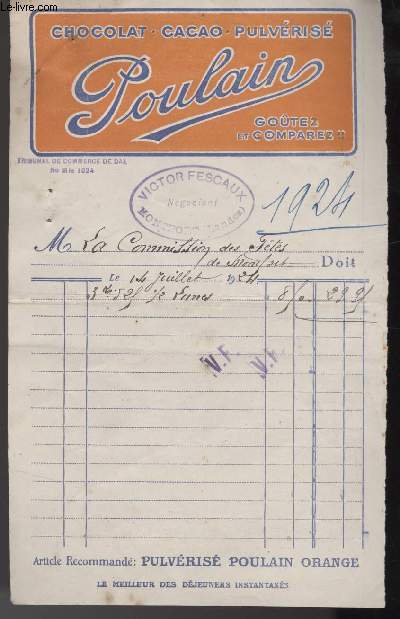 Le-livre.com
CHOCOLAT · CACAO · PULVÉRISÉ
Poulain
GOÛTEZ
ET COMPAREZ !!
TRIBUNAL DE COMMERCE DE DAX
No Mle 1024
VICTOR FESCAUX
Négociant
MONTFORT (Landes)
1924
M La Commission des Fêtes
de Montfort Doit
Le 14 Juillet 1924
V.F. V.F.
Article Recommandé: PULVÉRISÉ POULAIN ORANGE
LE MEILLEUR DES DÉJEUNERS INSTANTANÉS
Le-livre.com